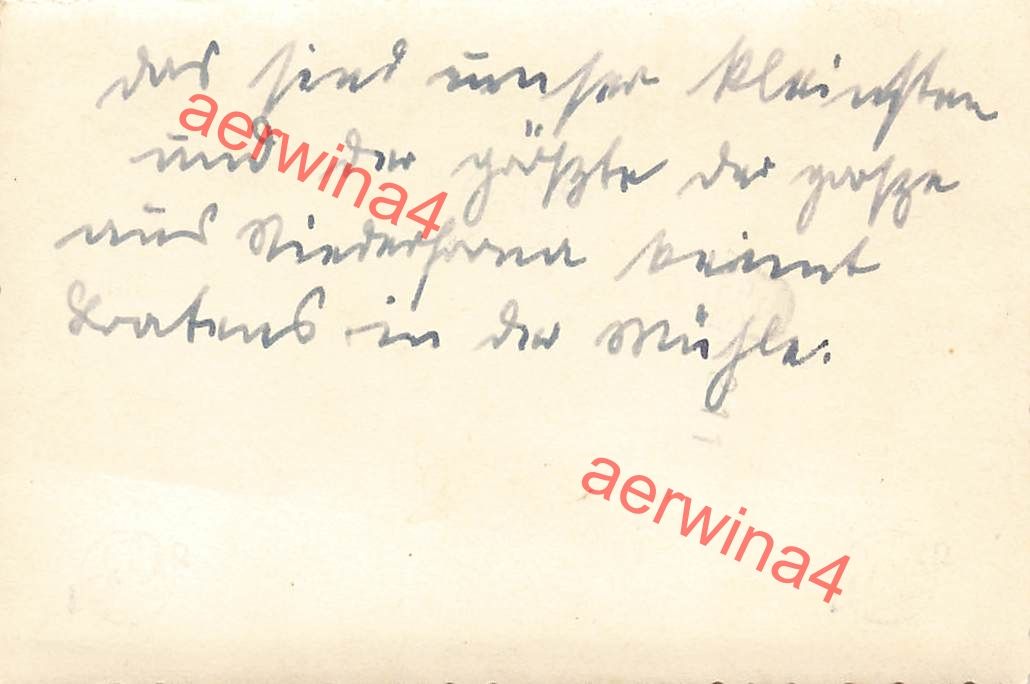 das sind unser kleinsten
und der größte der große
aus Niederhorna kennt
in der Mühle.
aerwina4
aerwina4